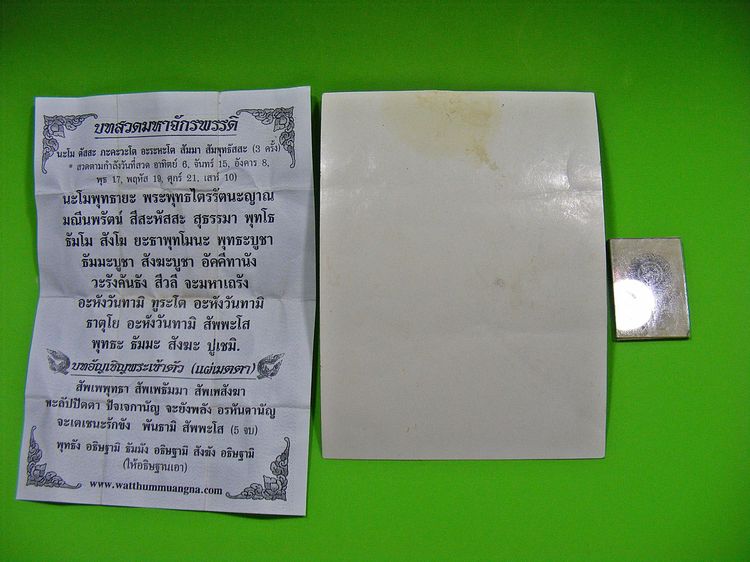 บทสวดมหาจักรพรรดิ
นะโม ตัสสะ ภะคะวะโต อะระหะโต สัมมา สัมพุทธัสสะ (3 ครั้ง)
* สวดตามกำลังวันที่สวด อาทิตย์ 6, จันทร์ 15, อังคาร 8,
พุธ 17, พฤหัส 19, ศุกร์ 21, เสาร์ 10)
นะโมพุทธายะ พระพุทธไตรรัตนะญาณ
มณีนพรัตน์ สีสะหัสสะ สุธรรมา พุทโธ
ธัมโม สังโฆ ยะธาพุทโมนะ พุทธะบูชา
ธัมมะบูชา สังฆะบูชา อัคคีทานัง
วะรังคันธัง สีวลี จะมหาเถรัง
อะหังวันทามิ ทูระโต อะหังวันทามิ
ธาตุโย อะหังวันทามิ สัพพะโส
พุทธะ ธัมมะ สังฆะ ปูเชมิ.
บทอัญเชิญพระเข้าตัว (แผ่เมตตา)
สัพเพพุทธา สัพเพธัมมา สัพเพสังฆา
พะลัปปัตตา ปัจเจกานัญ จะยังพลัง อรหันตานัญ
จะเตเชนะรักขัง พันธามิ สัพพะโส (5 จบ)
พุทธัง อธิษฐามิ ธัมมัง อธิษฐามิ สังฆัง อธิษฐามิ
(ให้อธิษฐานเอา)
www.watthummuangna.com